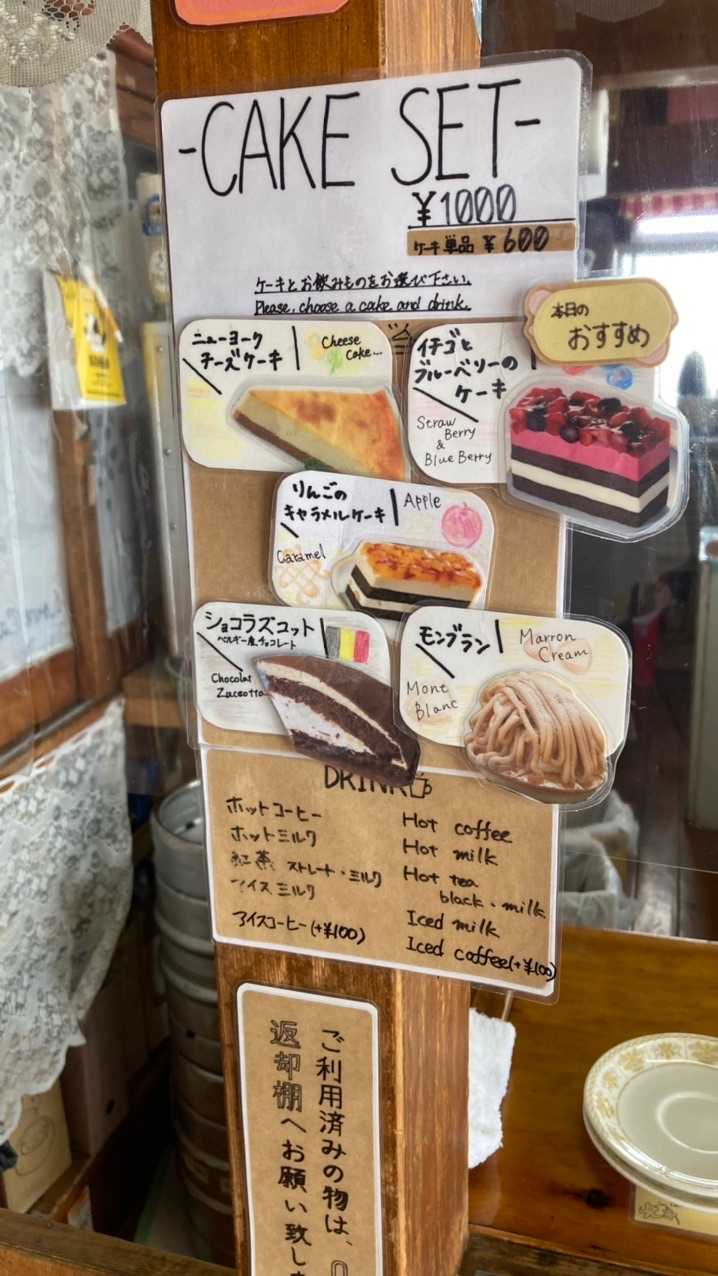 -CAKE SET-
¥1000
ケーキ単品 ¥600
ケーキとお飲みものをお選び下さい。
Please, choose a cake and drink.
本日の
おすすめ
ニューヨーク
チーズケーキ
Cheese
Cake...
イチゴと
ブルーベリーの
ケーキ
Straw
Berry
&
Blue Berry
りんごの
キャラメルケーキ
Apple
Caramel
ショコラズコット
ベルギー産チョコレート
Chocolat
Zucotto
モンブラン
Marron
Cream
Mont
Blanc
DRINK
ホットコーヒー
Hot coffee
ホットミルク
Hot milk
紅茶 ストレート・ミルク
Hot tea
black・milk
アイスミルク
Iced milk
アイスコーヒー(+¥100)
Iced coffee(+¥100)
ご利用済みの物は、
返却棚へお願い致しま